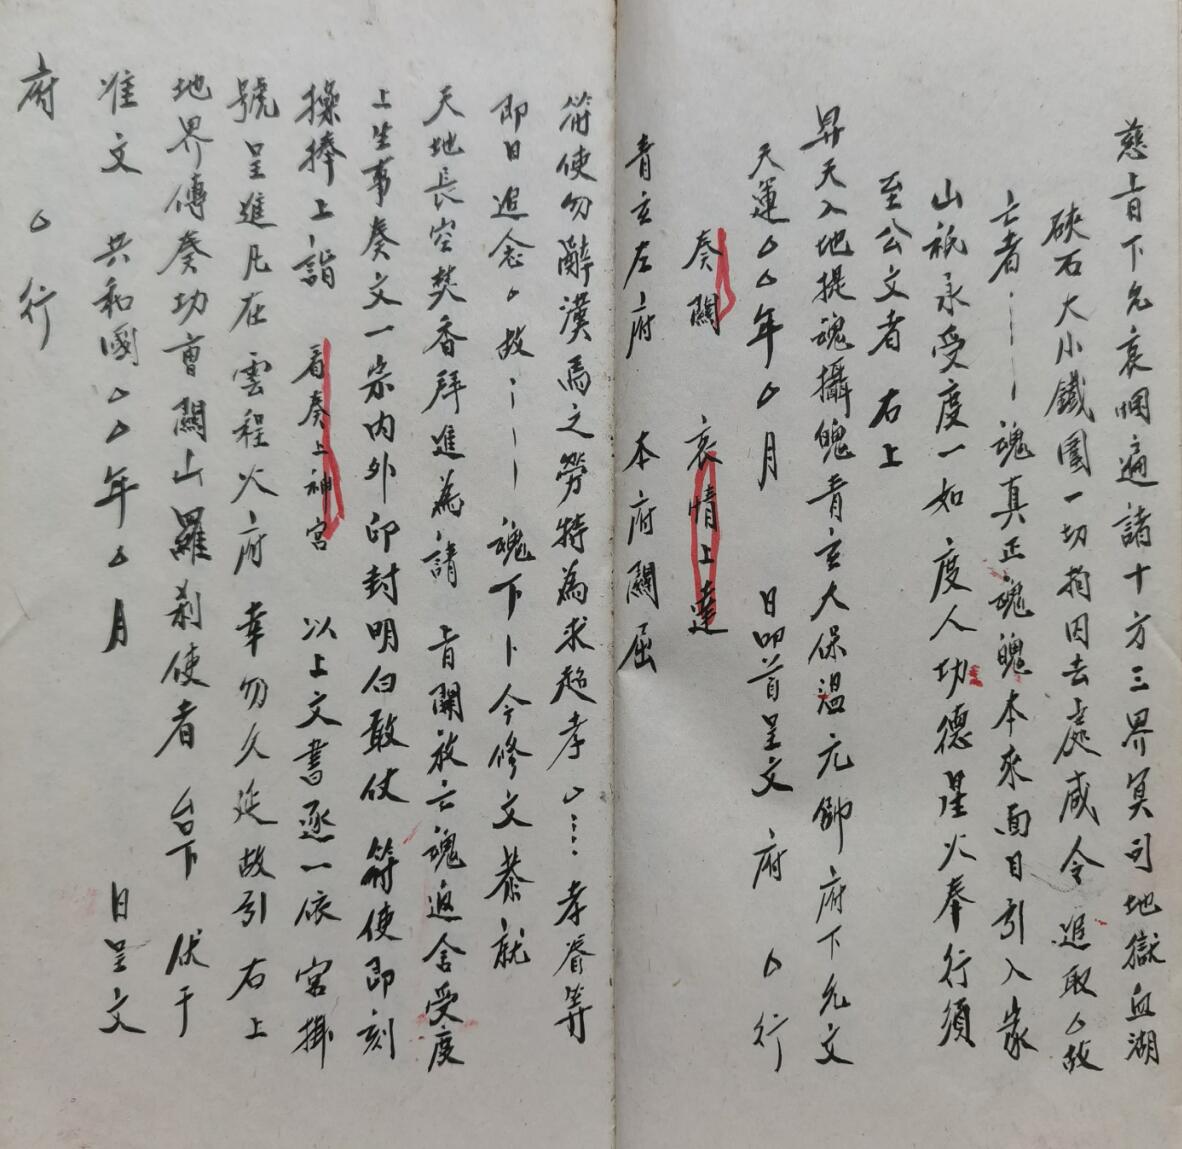 慈旨下允哀悃遍諸十方三界冥司地獄血湖
硤石大小鐵圍一切拘囚去處咸令追取厶故
亡者 魂真正魂魄本來面目引入家
山祇承受度一如度人功德星火奉行須
至公文者 右上
昇天入地提魂攝魄青玄大保溫元帥府下允文
天運厶厶年厶月 日叩首呈文 府 厶行
奏闗 哀情上達
青玄左府 本府闗屈
符使勿辭漢馬之勞特為求超孝厶 孝眷等
即日追念厶故 魂下卜今修文恭就
天地長空焚香拜進為請 旨開放亡魂返舍受度
上生事奏文一宗內外印封明白敢仗 符使即刻
操捧上詣 看奏上神宮 以上文書逐一依 宮掛
號呈進凡在雲程火府幸勿久延故引右上
地界傳奏功曹闗山羅剎使者 台下 伏于
准文 共和國厶厶年厶月 日呈文
府 厶行